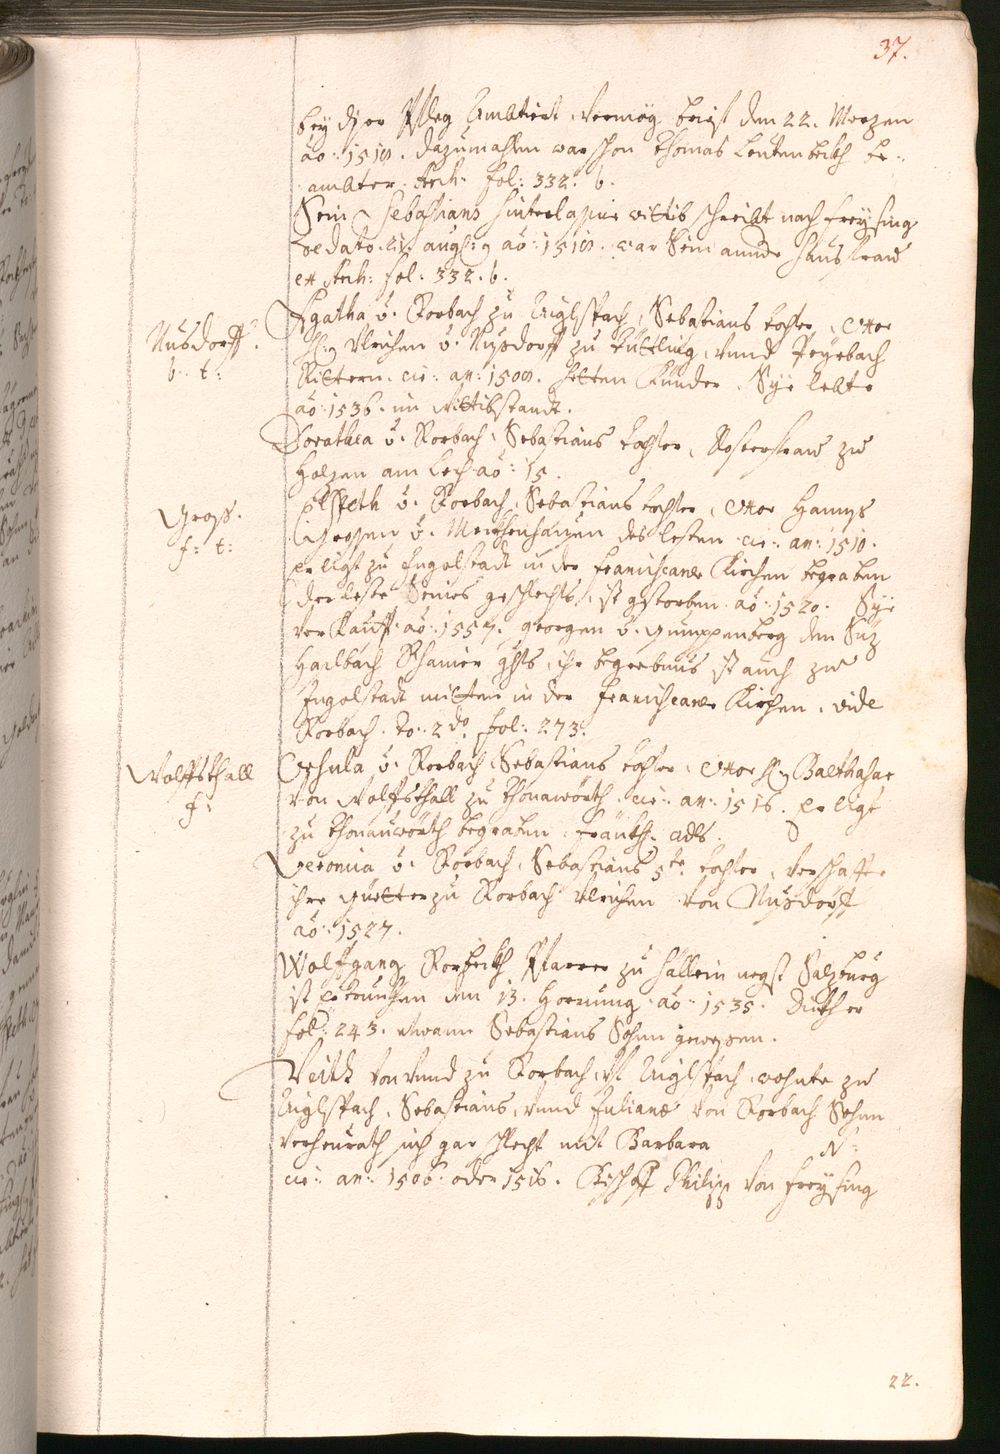 37.
bey diser Pfleg Ambtiert, vermög briefs den 22. Merzen
ao: 1518. dazumahlen war schon Thomas Leutenbeckh be-
ambter. Arch: fol: 332. b.
Sein Sebastians hinterlassne wittib schreibt nach Freysing
de dato. aug: ao: 1518. war Sein annder hausfraw
ex Arch: fol: 332. b.
Agatha v. Rorbach zu Aiglspach, Sebastians tochter, uxor
Nusdorff.
b. t:
H: Ulrichen v. Nusdorff zu Tüttling, vnnd Peyrbach
Rittern. cir: an: 1508. hetten Künder. Sye lebte
ao: 1536. im Wittibstandt.
Dorathea v. Rorbach, Sebastians tochter, Closterfraw zu
Holzen am Lech ao: 15
Gross.
f: t:
Elspeth v. Rorbach, Sebastians tochter, uxor Hannss
Grossen v. des lesten cir: an: 1510.
Er ligt zu Ingolstadt in der Franciscaner Kirchen begraben
der leste Seines geschlechts, ist gestorben ao: 1520. Sye
verkaufft ao: 1557. georgen v. gumppenberg den Siz
Hailbach ghts, ihr begrebnus ist auch zu
Ingolstadt mitten in der Franciscaner Kirchen, vide
Rorbach. to: 2do fol: 273.
Wolffsthall
f:
Vrsula v. Rorbach, Sebastians tochter, uxor H: Balthasar
von Wolffsthall zu Thonawörth. cir: an: 1516. Er ligt
zu Thonauwörth begraben. fränkh: adls.
Veronica v. Rorbach, Sebastians 5te tochter, verschafft
ihre guetter zu Rorbach Ulrichen von Nusdorff
ao: 1527.
Wolfgang Rorbeckh Pfarrer zu Hallein negst Salzburg
ist Ertrunkhen den 13. Hornung ao: 1535.
fol: 243. etwann Sebastians Sohn gewesen.
Veith von vnnd zu Rorbach, vf Aiglspach, wohnte zu
Aiglspach, Sebastians, vnnd Julianae von Rorbach Sohn
verheurath sich gar schlecht mit Barbara N:
cir: an: 1506. oder 1516. Bischoff Philipp von Freysing
22.